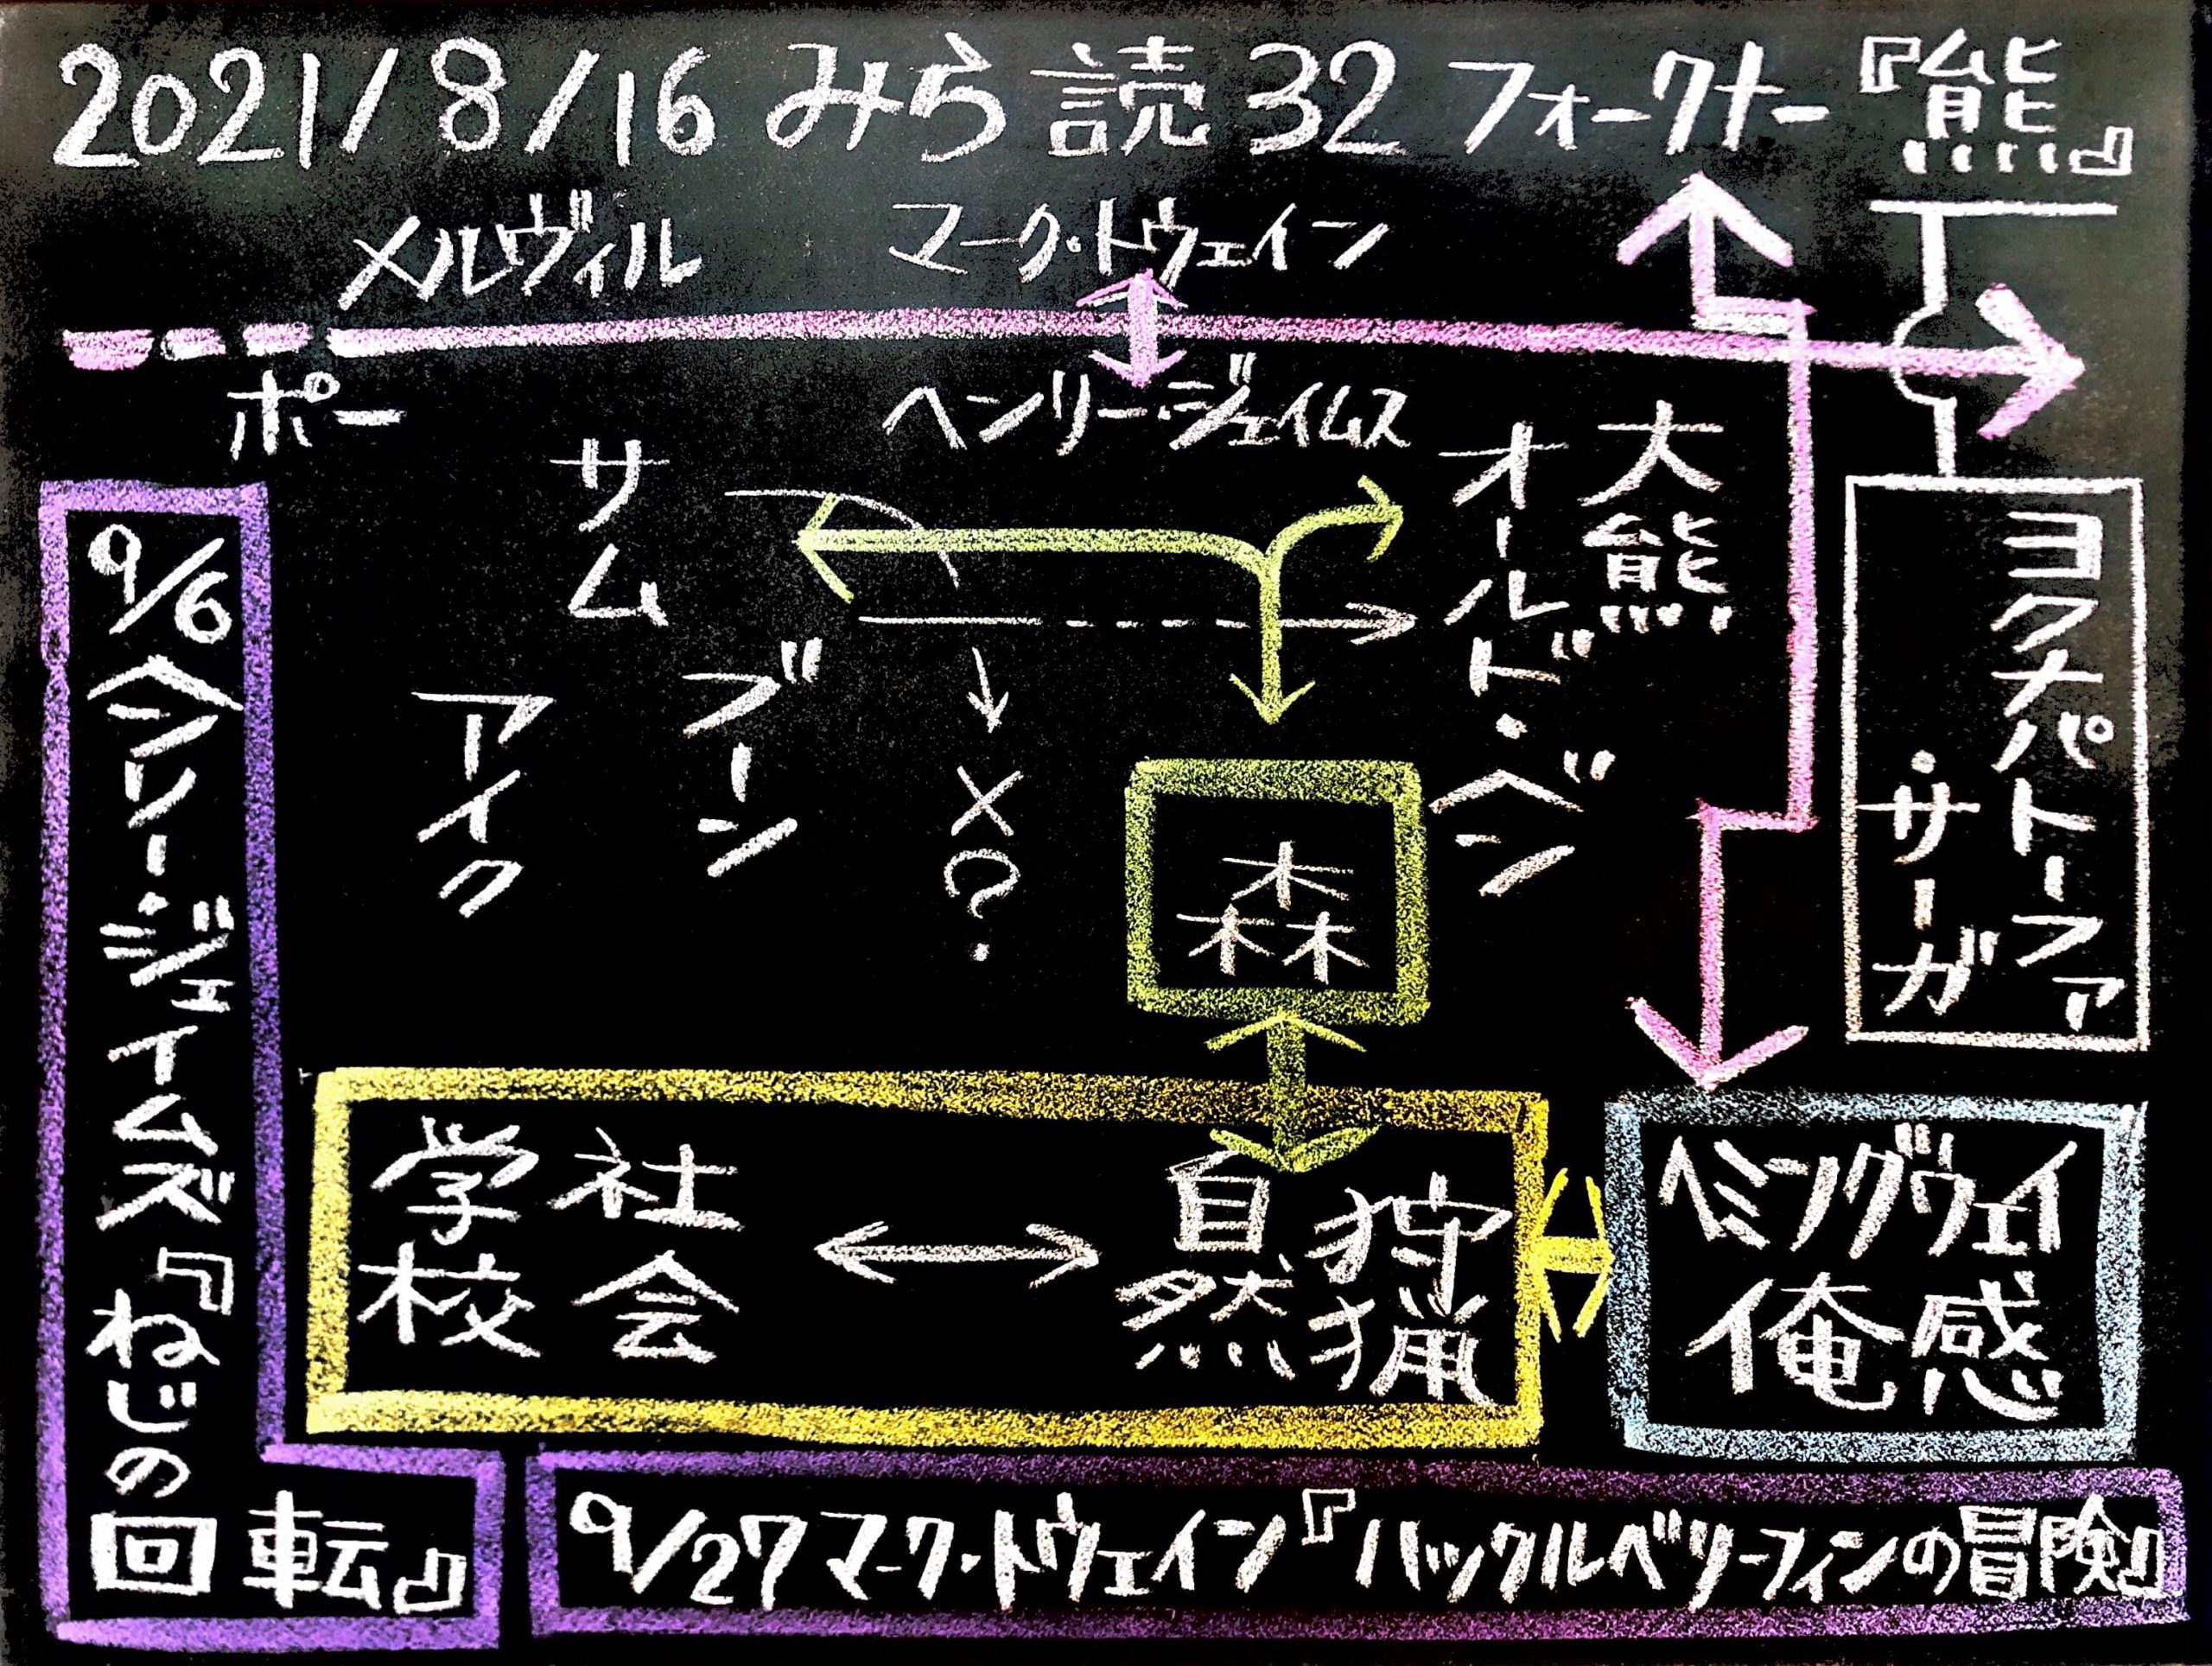 2021/8/16 みら読 32 フォークナー『熊』
メルヴィル
マーク・トウェイン
ポー
ヘンリー・ジェイムス
大熊
オールド・ベン
サム
ブーン
アイク
×?
森
ヨクナパトーファ
・サーガ
社会
学校
狩猟
自然
ヘミングウェイ
俺感
9/6 ヘンリー・ジェイムズ『ねじの
回転』
9/27 マーク・トウェイン『ハックルベリーフィンの冒険』